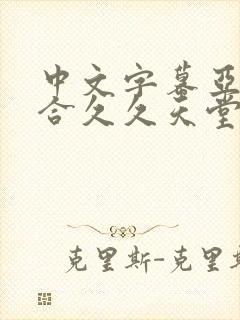 中文字幕亚
合久久天堂
克里斯-克里斯